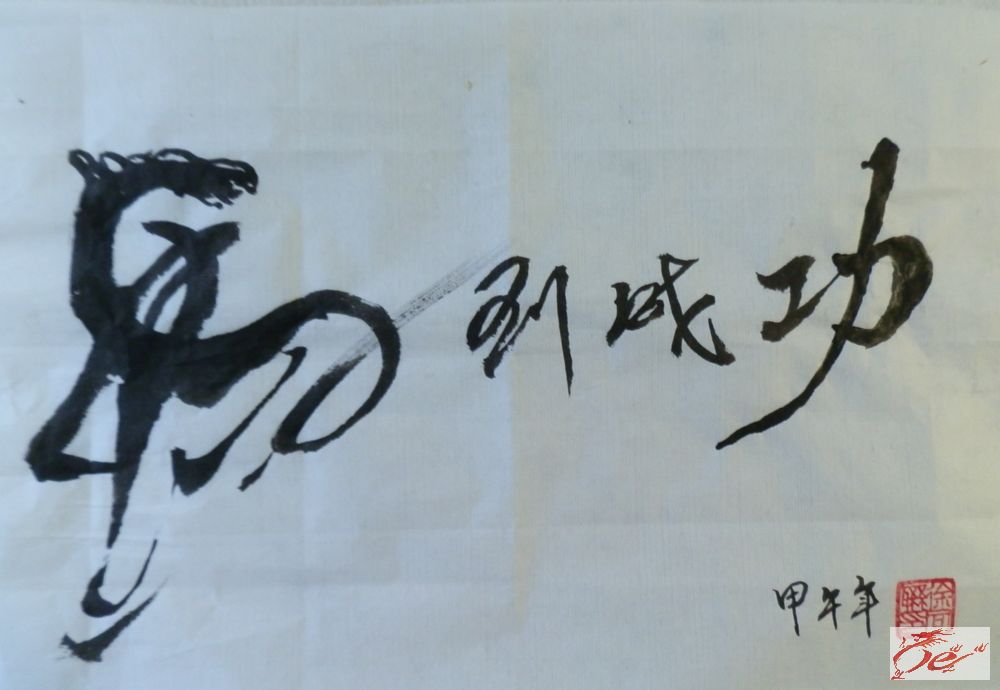 馬到成功
甲午年